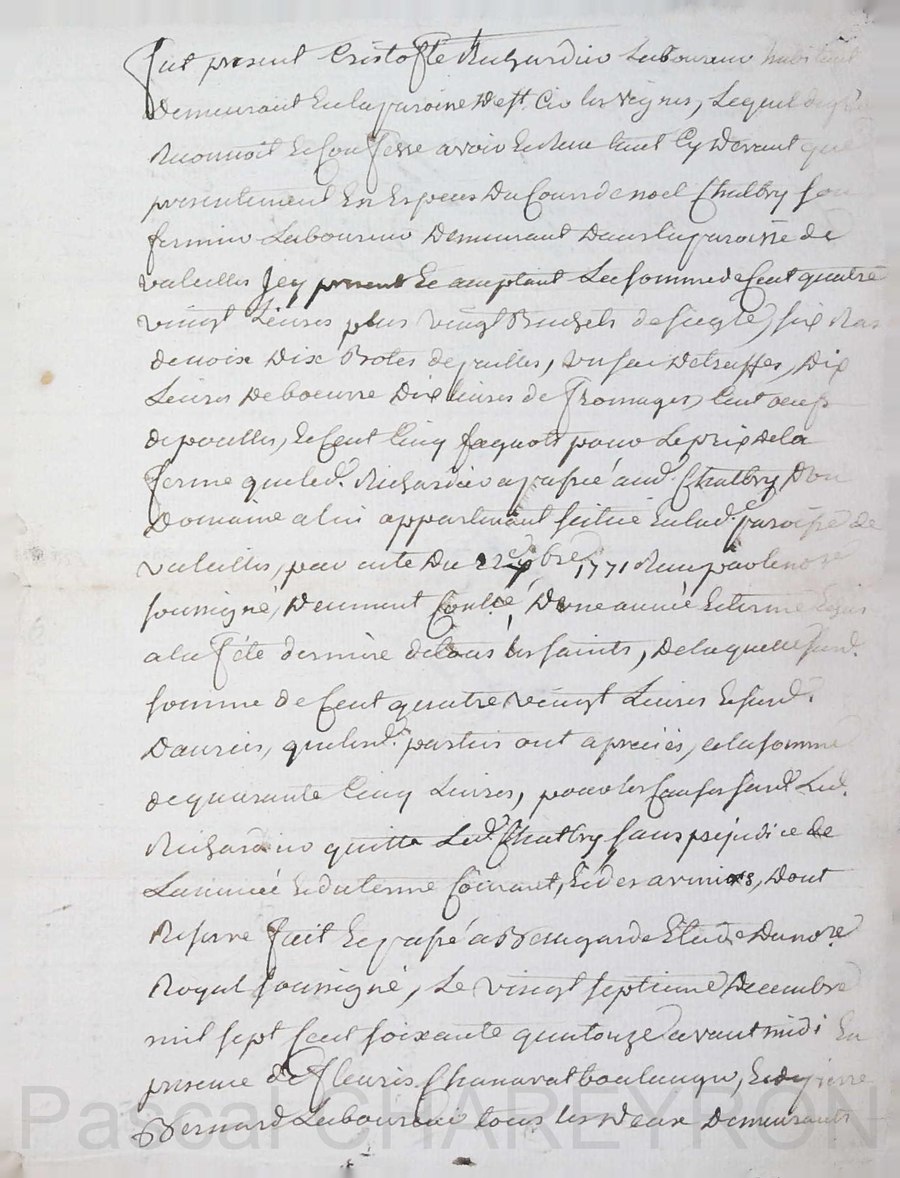 fut present Cristofle Richardier Laboureur habitant
Demeurant En la paroisse de st. Cir les Vignes, Lequel de gré
Reconnoit Et Confesse avoir Eu Receu tant Cy Devant que
presentement En Especes Du Cours de noel Chalbry son
fermier Laboureur Demeurant Dans la paroisse de
valeilles Jcy present Et acceptant La somme de Cent quatre
vingt Livres plus vingt Bichets de Siegle, six Ras
de noix Dix Botes de pailles, un sac De truffes, Dix
Livres De boeurre Dix livres de fromages, Cent oeufs
de poulles, Et Cent Cinq fagnots pour Le prix de la
ferme que led. Richardier a passée aud. Chalbry D'un
Domaine a lui appartenant scitué En lad. paroisse de
valeilles, par acte Du 22e 7bre 1771 Receu par le nore
soussigné, Deument Conllé, D'une année Et terme Echus
a la féte derniere de tous les saints, De laquelle surd.
somme de Cent quatre vingt Livres Et surd.
Danrées, que lesd. parties ont apreciés, a la somme
de quarante Cinq Livres, pour les Causes surd. Led.
Richardier quitte Led. Chalbry sans prejudice de
L'année Et du terme Courant, Et des arrives, Dont
Reserve fait Et passé a Beauregard Etude Du nore
Royal soussigné, Le vingt septieme Decembre
mil sept Cent soixante quatorze avant midi En
presence de fleuris Chanavat boulanger, Et de pierre
Bernard Laboureur tous les Deux Demeurants
Pascal CHAREYRON